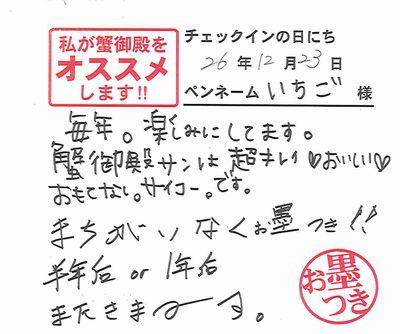 私が蟹御殿を
オススメ
します!!
チェックインの日にち
26年12月23日
ペンネーム いちご 様
毎年。楽しみにしてます。
蟹御殿サンは超キレイ♡おいしい♡
おもてなし。サイコー。です。
まちがいなくお墨つき!!
半年后 or 1年后
またきま〜す。
お墨つき